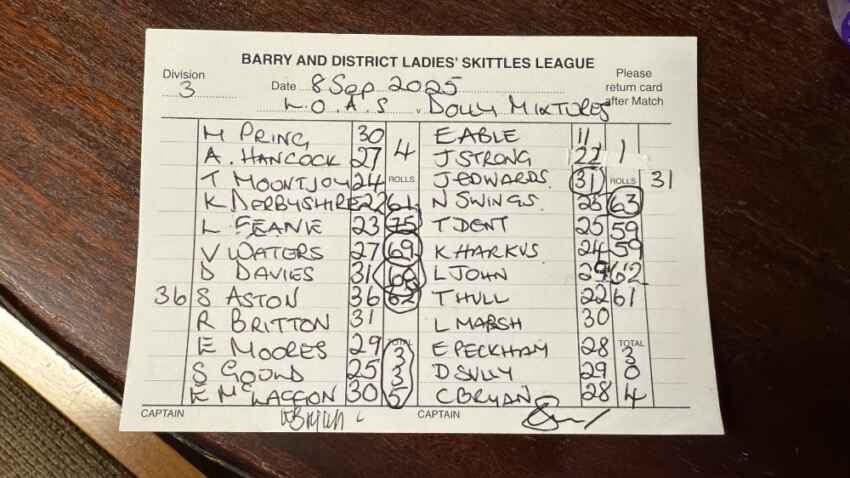 BARRY AND DISTRICT LADIES' SKITTLES LEAGUE
Division 3
Date 8 Sep 2025
Please return card after Match
L.O.A.S v DOLLY MIXTURES
M PRING 30 4 E ABLE 11 1
A. HANCOCK 27 J STRONG 22
T MOUNTJOY 24 ROLLS J EDWARDS. 31 ROLLS 31
K DERBYSHIRE 22 61 N SWINGS. 25 63
L FEANE 23 75 T DENT 25 59
V WATERS 27 69 K HARKUS 24 59
D DAVIES 31 68 L JOHN 29 62
36 S ASTON 36 62 T HULL 22 61
R BRITTON 31 L MARSH 30
E MOORES 29 TOTAL 3 E PECKHAM 28 TOTAL 3
S GOUND 25 3 D SULLY 29 0
E MCLAGGON 30 5 C BRYAN 28 4
CAPTAIN CAPTAIN